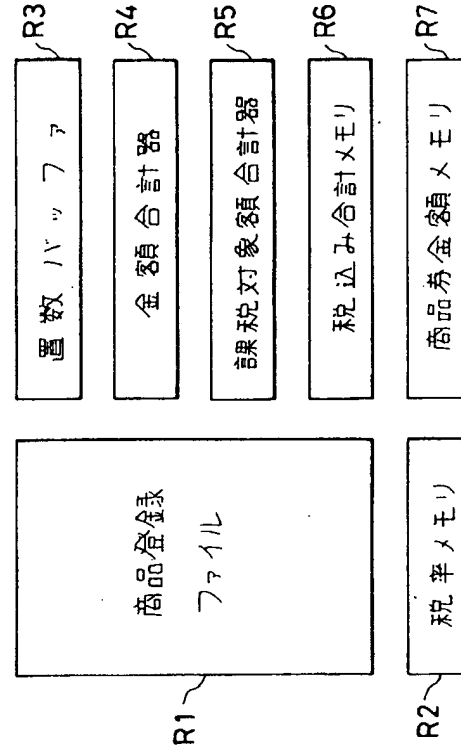 R1
商品登録
ファイル
R2
税率メモリ
R3
置数バッファ
R4
金額合計器
R5
課税対象額合計器
R6
税込み合計メモリ
R7
商品券金額メモリ